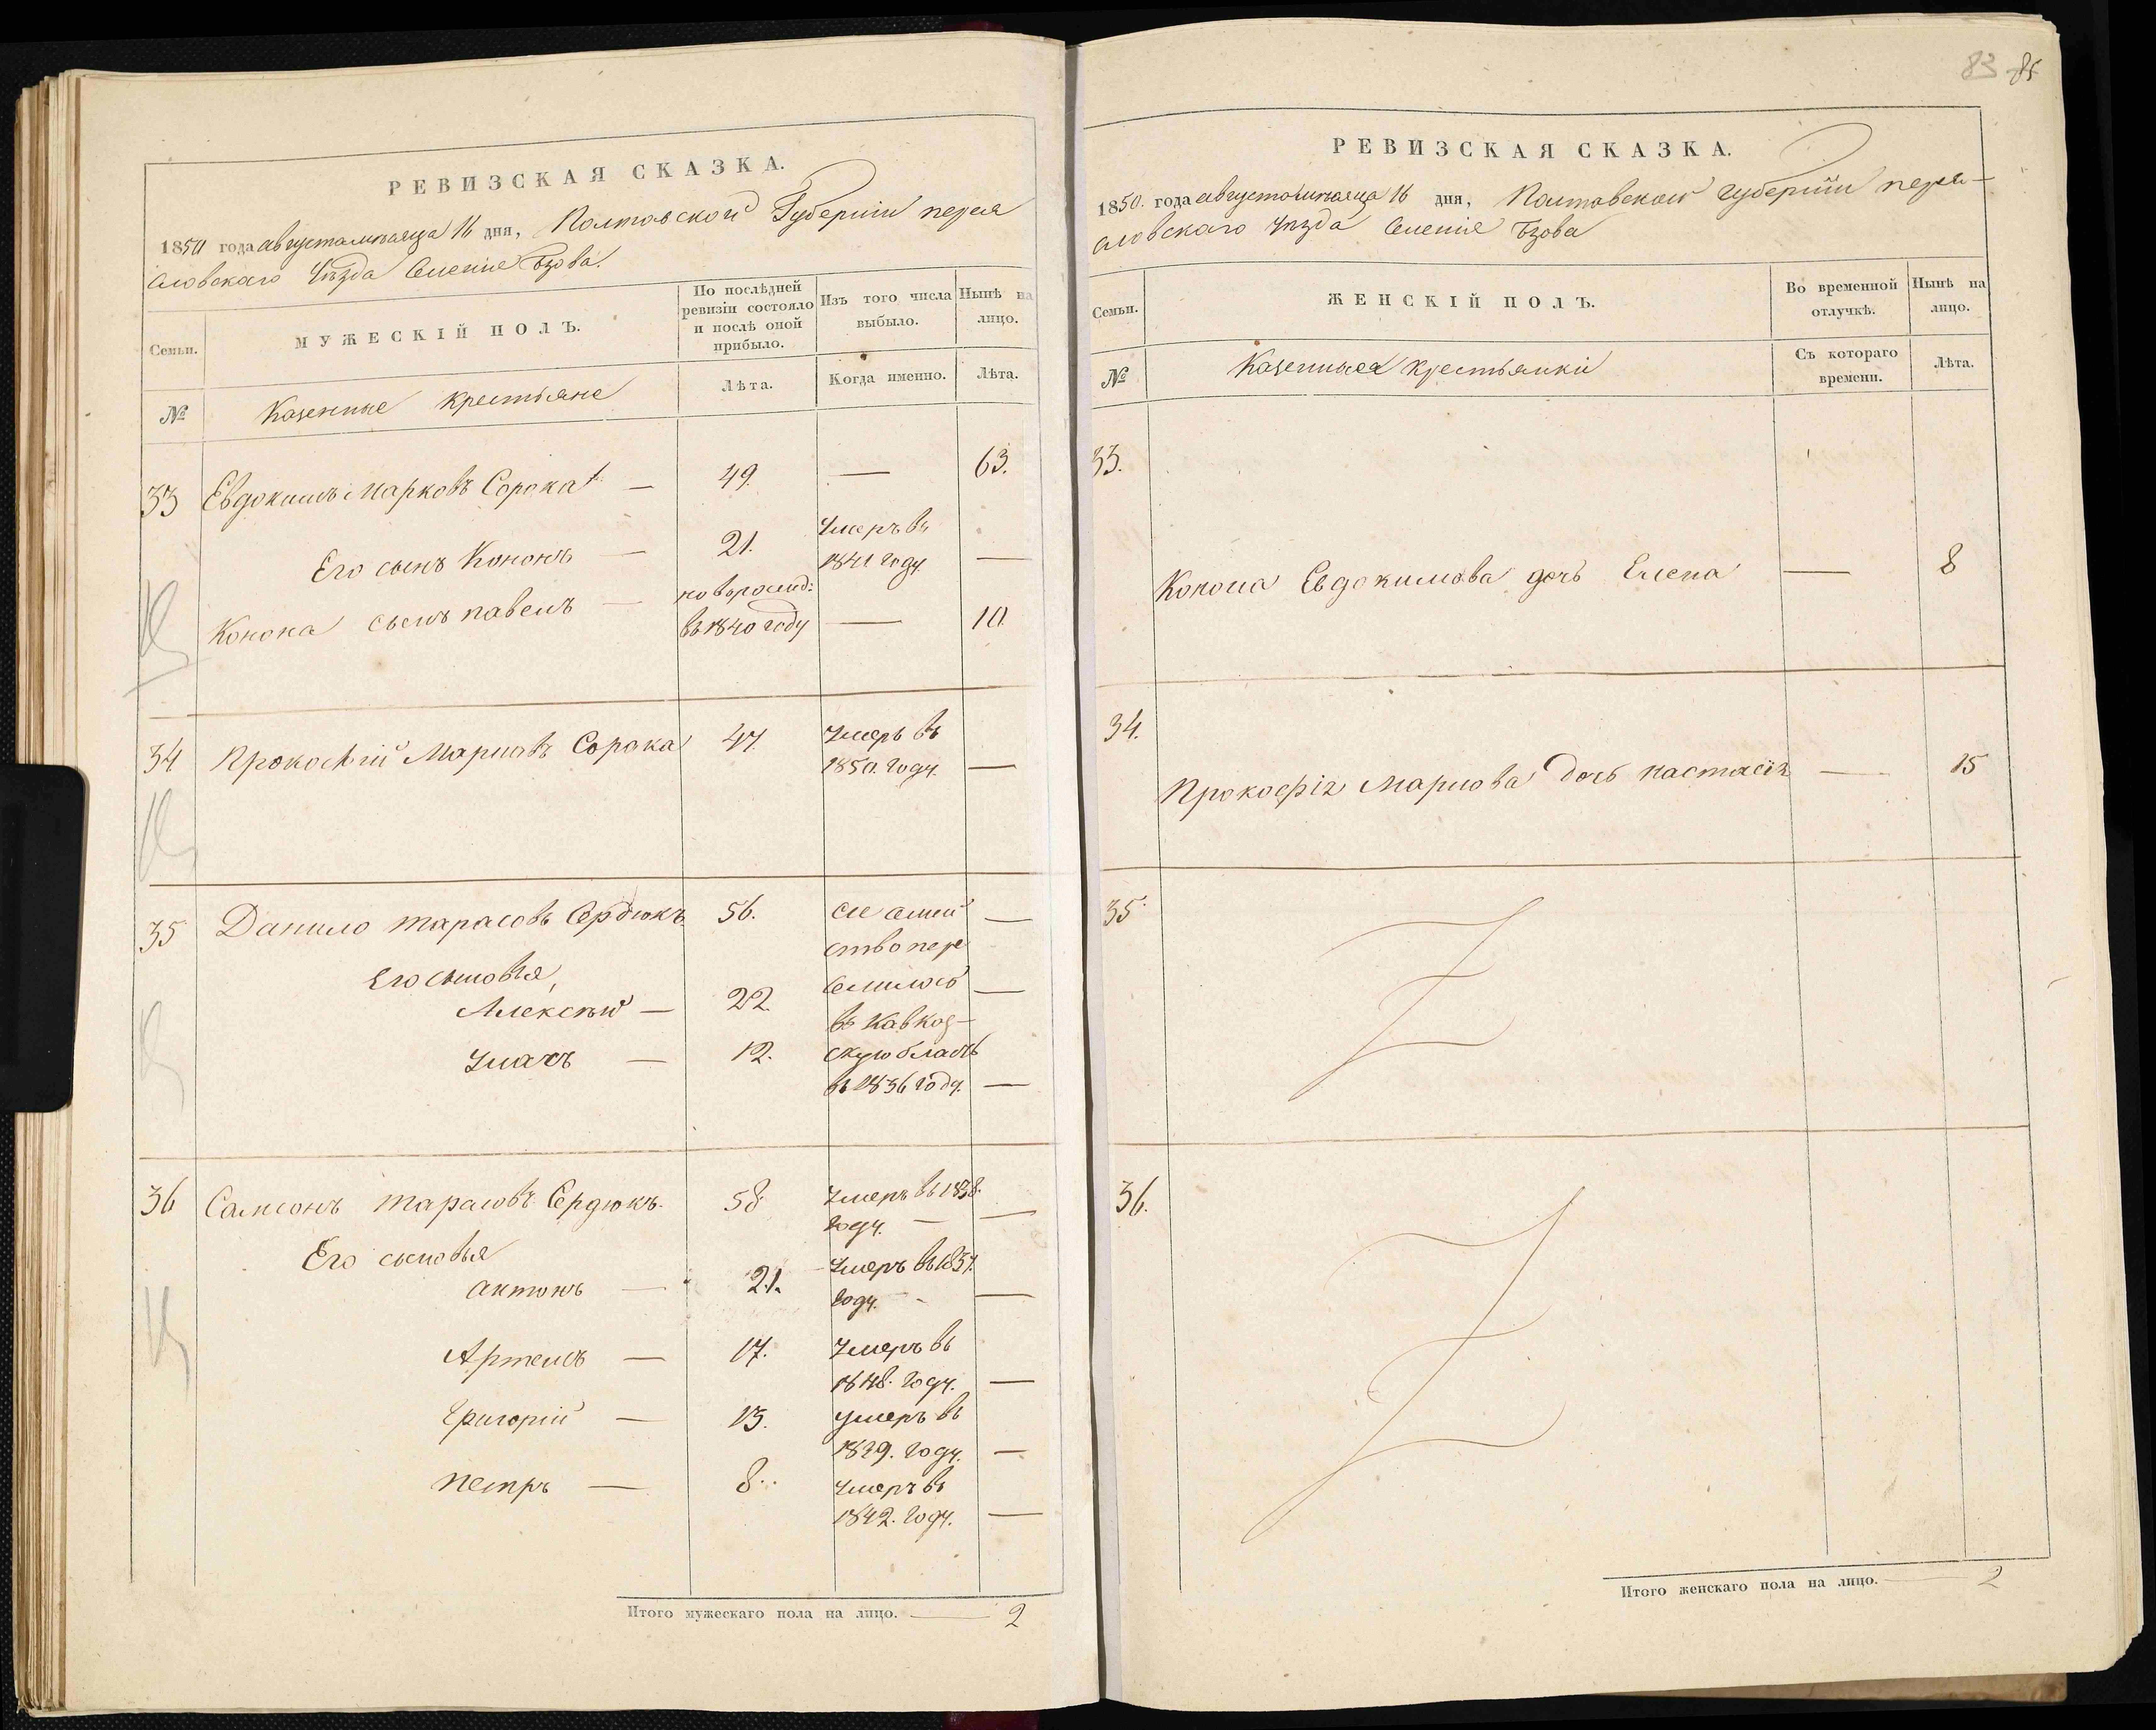 РЕВИЗСКАЯ СКАЗКА.
1850 года августа мѣсяца 16 дня, Полтавской Губерніи перея
словскаго Уѣзда Селеніе Бзова.
Семьи.
МУЖЕСКІЙ ПОЛЪ.
По послѣдней ревизіи состояло и послѣ оной прибыло.
Изъ того числа выбыло.
Нынѣ на лицо.
№
Казенные крестьяне
Лѣта.
Когда именно.
Лѣта.
33 Евдокимъ Марковъ Сорока — 49. — 63.
Его сынъ Кононъ — 21. Умеръ въ
1841 году —
Конона сынъ павелъ — новорожд:
въ 1840 году — 10.
34 Прокофій Марковъ Сорока 47. Умеръ въ
1850. году. —
35 Данило тарасовъ Сердюкъ 56. съ семей —
ство пере
Его сыновья,
селилось
Алексѣй — 22. —
въ Кавказ-
скую область
12.
въ 1836 году. —
36 Самсонъ тарасовъ Сердюкъ. 58. Умеръ въ 1838.
году. — —
Его сыновья
антонъ — 21. Умеръ въ 1837.
году. —
Артемъ — 17. Умеръ въ
1848. году. —
Григорій — 13. умеръ въ
году. —
петръ — 8.. Умеръ въ
1842. году. —
Итого мужескаго пола на лицо. — 2
83 85
РЕВИЗСКАЯ СКАЗКА.
1850. года августа мѣсяца 16 дня, Полтавской губерніи перея-
словскаго Уѣзда Селеніе Бзова
Семьи.
ЖЕНСКІЙ ПОЛЪ.
Во временной отлучкѣ.
Нынѣ на лицо.
№
Казенныя крестьянки
Съ котораго времени.
Лѣта.
33.
Конона Евдокимова дочь Елена — 8
34.
Прокофія Маркова дочь настасія — 15
35.
36.
Итого женскаго пола на лицо. — 2